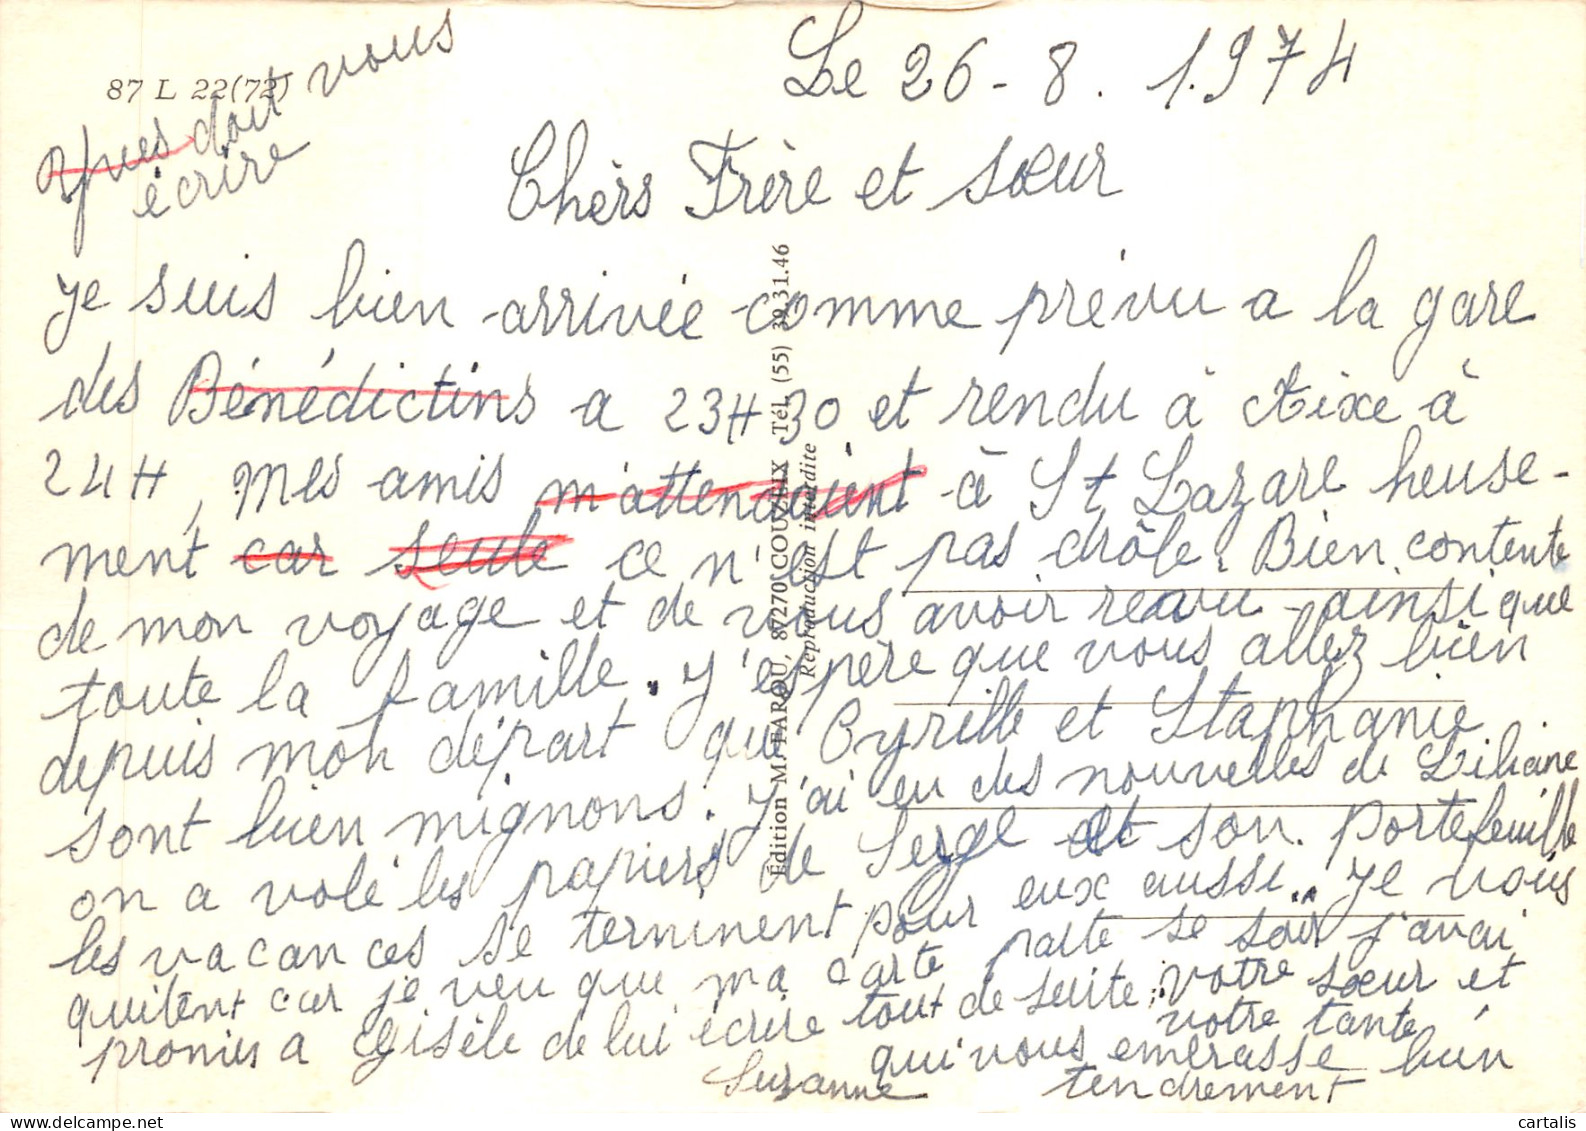 87 L 22(72)
Yves doit vous
écrire
Le 26-8.1.974
Chèrs Frère et sœur
Je suis bien arrivée comme prévu a la gare
des Bénédictins a 23H30 et rendu à Aixe à
24H, Mes amis m'attendaient à St Lazare heuse-
ment car seule ce n'est pas drôle. Bien contente
de mon voyage et de vous avoir revu ainsi que
toute la famille. J'espère que vous allez bien
depuis mon départ que Cyrille et Staphanie
sont bien mignons. J'ai eu des nouvelles de Liliane
on a volé les papiers de Serge et son portefeuille
les vacances se terminent pour eux aussi. Je vous
quitent car je veu que ma carte parte se soir j'avai
promis a Gisèle de lui écrire tout de suite. Votre sœur et
votre tante
qui vous embrasse bien
tendrement
Suzanne
Édition M. FAROU, 87270 COUZEIX Tél. (55) 39.31.46
Reproduction interdite
cartalis